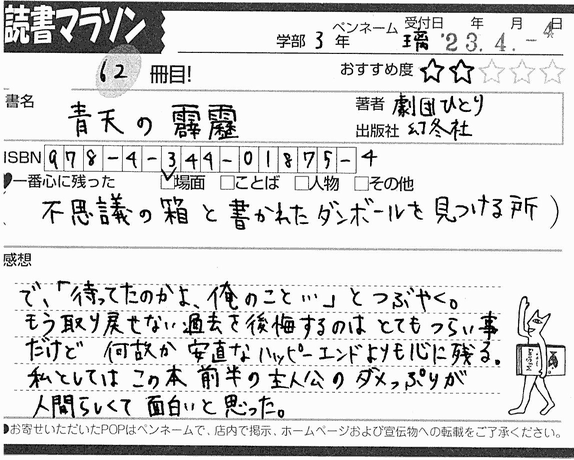 読書マラソン
学部 3 年 ペンネーム 璃 受付日 年 月 日 '23.4.-4
62 冊目! おすすめ度 ☆☆☆☆☆
書名 青天の霹靂
著者 劇団ひとり
出版社 幻冬社
ISBN 978-4-344-01875-4
一番心に残った ☑場面 □ことば □人物 □その他
不思議の箱と書かれたダンボールを見つける所)
感想
で、「待ってたのかよ、俺のこと…」とつぶやく。
もう取り戻せない過去を後悔するのはとてもつらい事
だけど 何故か 安直なハッピーエンドよりも心に残る。
私としてはこの本前半の主人公のダメっぷりが
人間らしくて面白いと思った。
●お寄せいただいたPOPはペンネームで、店内で掲示、ホームページおよび宣伝物への転載をご了承ください。